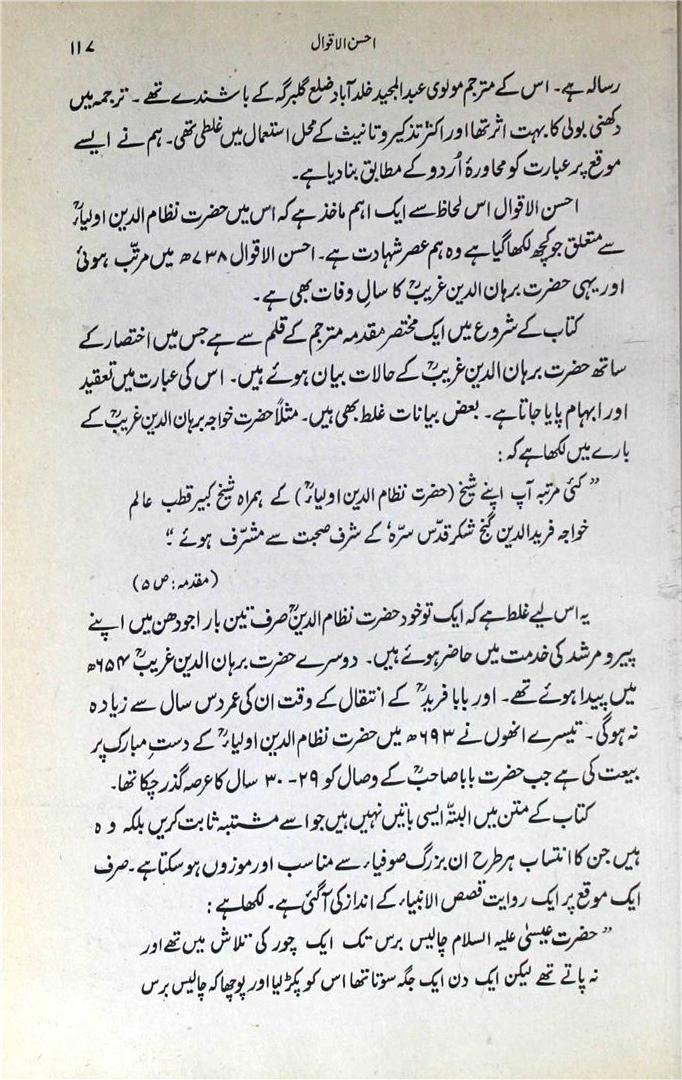 احسن الاقوال
۱۱۷
رسالہ ہے۔ اس کے مترجم مولوی عبدالمجید خلدآباد ضلع گلبرگہ کے باشندے تھے۔ ترجمہ میں
دکھنی بولی کا بہت اثر تھا اور اکثر تذکیر و تانیث کے محل استعمال میں غلطی تھی۔ ہم نے ایسے
موقع پر عبارت کو محاورۂ اُردو کے مطابق بنا دیا ہے۔
احسن الاقوال اس لحاظ سے ایک اہم ماخذ ہے کہ اس میں حضرت نظام الدین اولیاءؒ
سے متعلق جو کچھ لکھا گیا ہے وہ ہم عصر شہادت ہے۔ احسن الاقوال ۷۳۸ھ میں مرتّب ہوئی
اور یہی حضرت برہان الدین غریبؒ کا سالِ وفات بھی ہے۔
کتاب کے شروع میں ایک مختصر مقدمہ مترجم کے قلم سے ہے جس میں اختصار کے
ساتھ حضرت برہان الدین غریبؒ کے حالات بیان ہوئے ہیں۔ اس کی عبارت میں تعقید
اور ابہام پایا جاتا ہے۔ بعض بیانات غلط بھی ہیں۔ مثلاً حضرت خواجہ برہان الدین غریبؒ کے
بارے میں لکھا ہے کہ :
”کئی مرتبہ آپ اپنے شیخ (حضرت نظام الدین اولیاءؒ) کے ہمراہ شیخ کبیر قطب عالم
خواجہ فرید الدین گنج شکر قدّس سرّہٗ کے شرف صحبت سے مشرّف ہوئے“
(مقدمہ: ص ۵)
یہ اس لیے غلط ہے کہ ایک تو خود حضرت نظام الدینؒ صرف تین بار اجودھن میں اپنے
پیر و مرشد کی خدمت میں حاضر ہوئے ہیں۔ دوسرے حضرت برہان الدین غریبؒ ۶۵۴ھ
میں پیدا ہوئے تھے۔ اور بابا فریدؒ کے انتقال کے وقت ان کی عمر دس سال سے زیادہ
نہ ہوگی۔ تیسرے انھوں نے ۶۹۳ھ میں حضرت نظام الدین اولیاءؒ کے دستِ مبارک پر
بیعت کی ہے جب حضرت بابا صاحبؒ کے وصال کو ۲۹-۳۰ سال کا عرصہ گذر چکا تھا۔
کتاب کے متن میں البتہّ ایسی باتیں نہیں ہیں جو اسے مشتبہ ثابت کریں بلکہ وہ
ہیں جن کا انتساب ہر طرح ان بزرگ صوفیاء سے مناسب اور موزوں ہو سکتا ہے۔ صرف
ایک موقع پر ایک روایت قصص الانبیاء کے انداز کی آ گئی ہے۔ لکھا ہے :
”حضرت عیسیٰ علیہ السلام چالیس برس تک ایک چور کی تلاش میں تھے اور
نہ پاتے تھے لیکن ایک دن ایک جگہ سوتا تھا اس کو پکڑ لیا اور پوچھا کہ چالیس برس